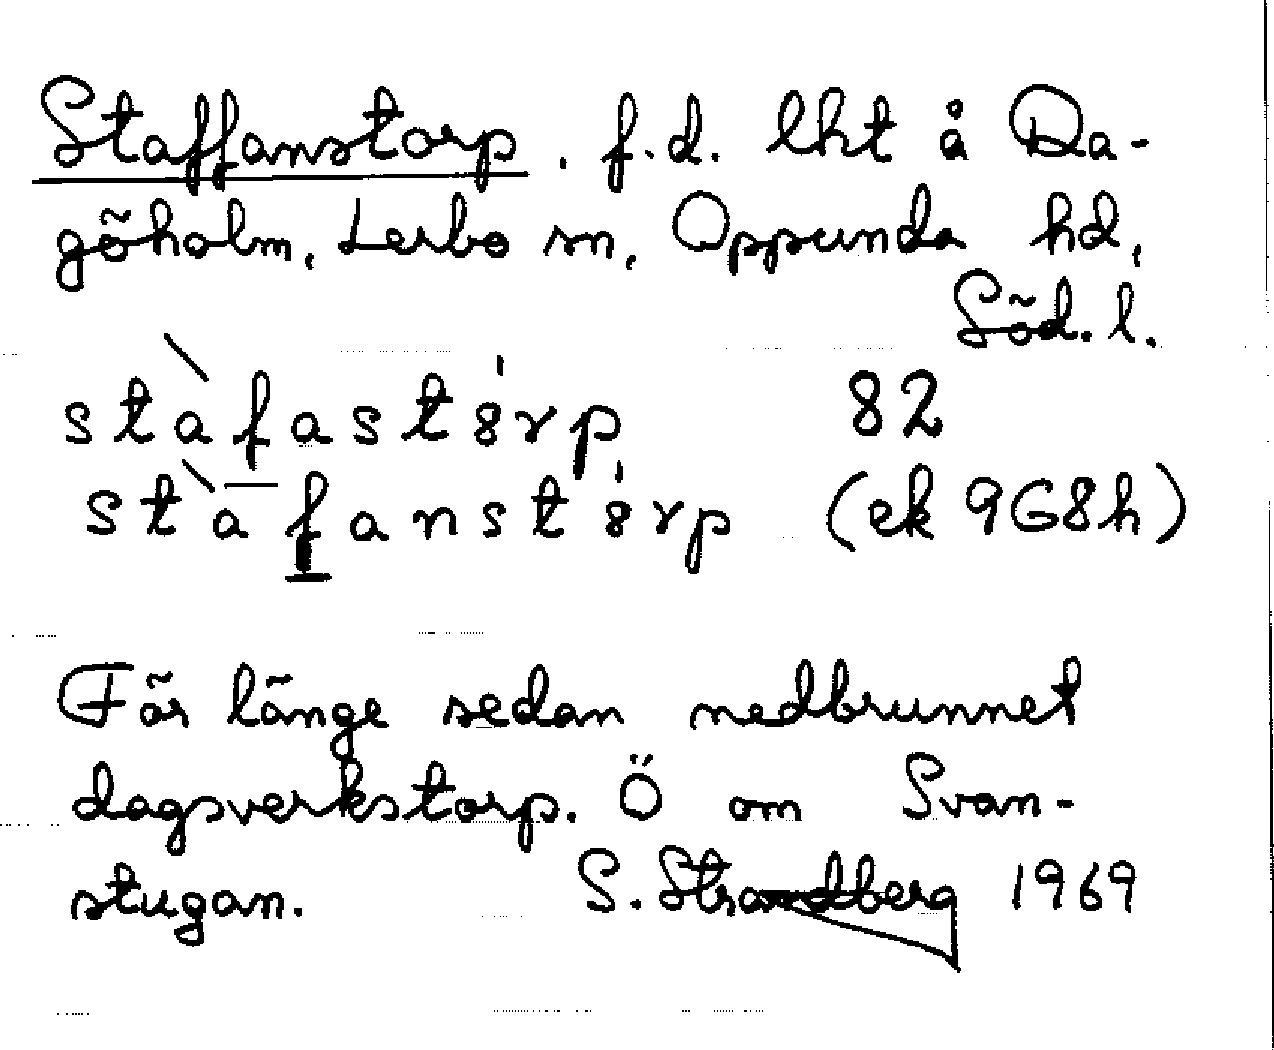 Staffanstorp. f.d. lht å Da-
göholm, Lerbo sn, Oppunda hd,
Söd. l.
stàfastȣ́rp 82
stàf̲anstȣ́rp (ek 9G8h)
För länge sedan nedbrunnet
dagsverkstorp. Ö om Svan-
stugan. S. Strandberg 1969